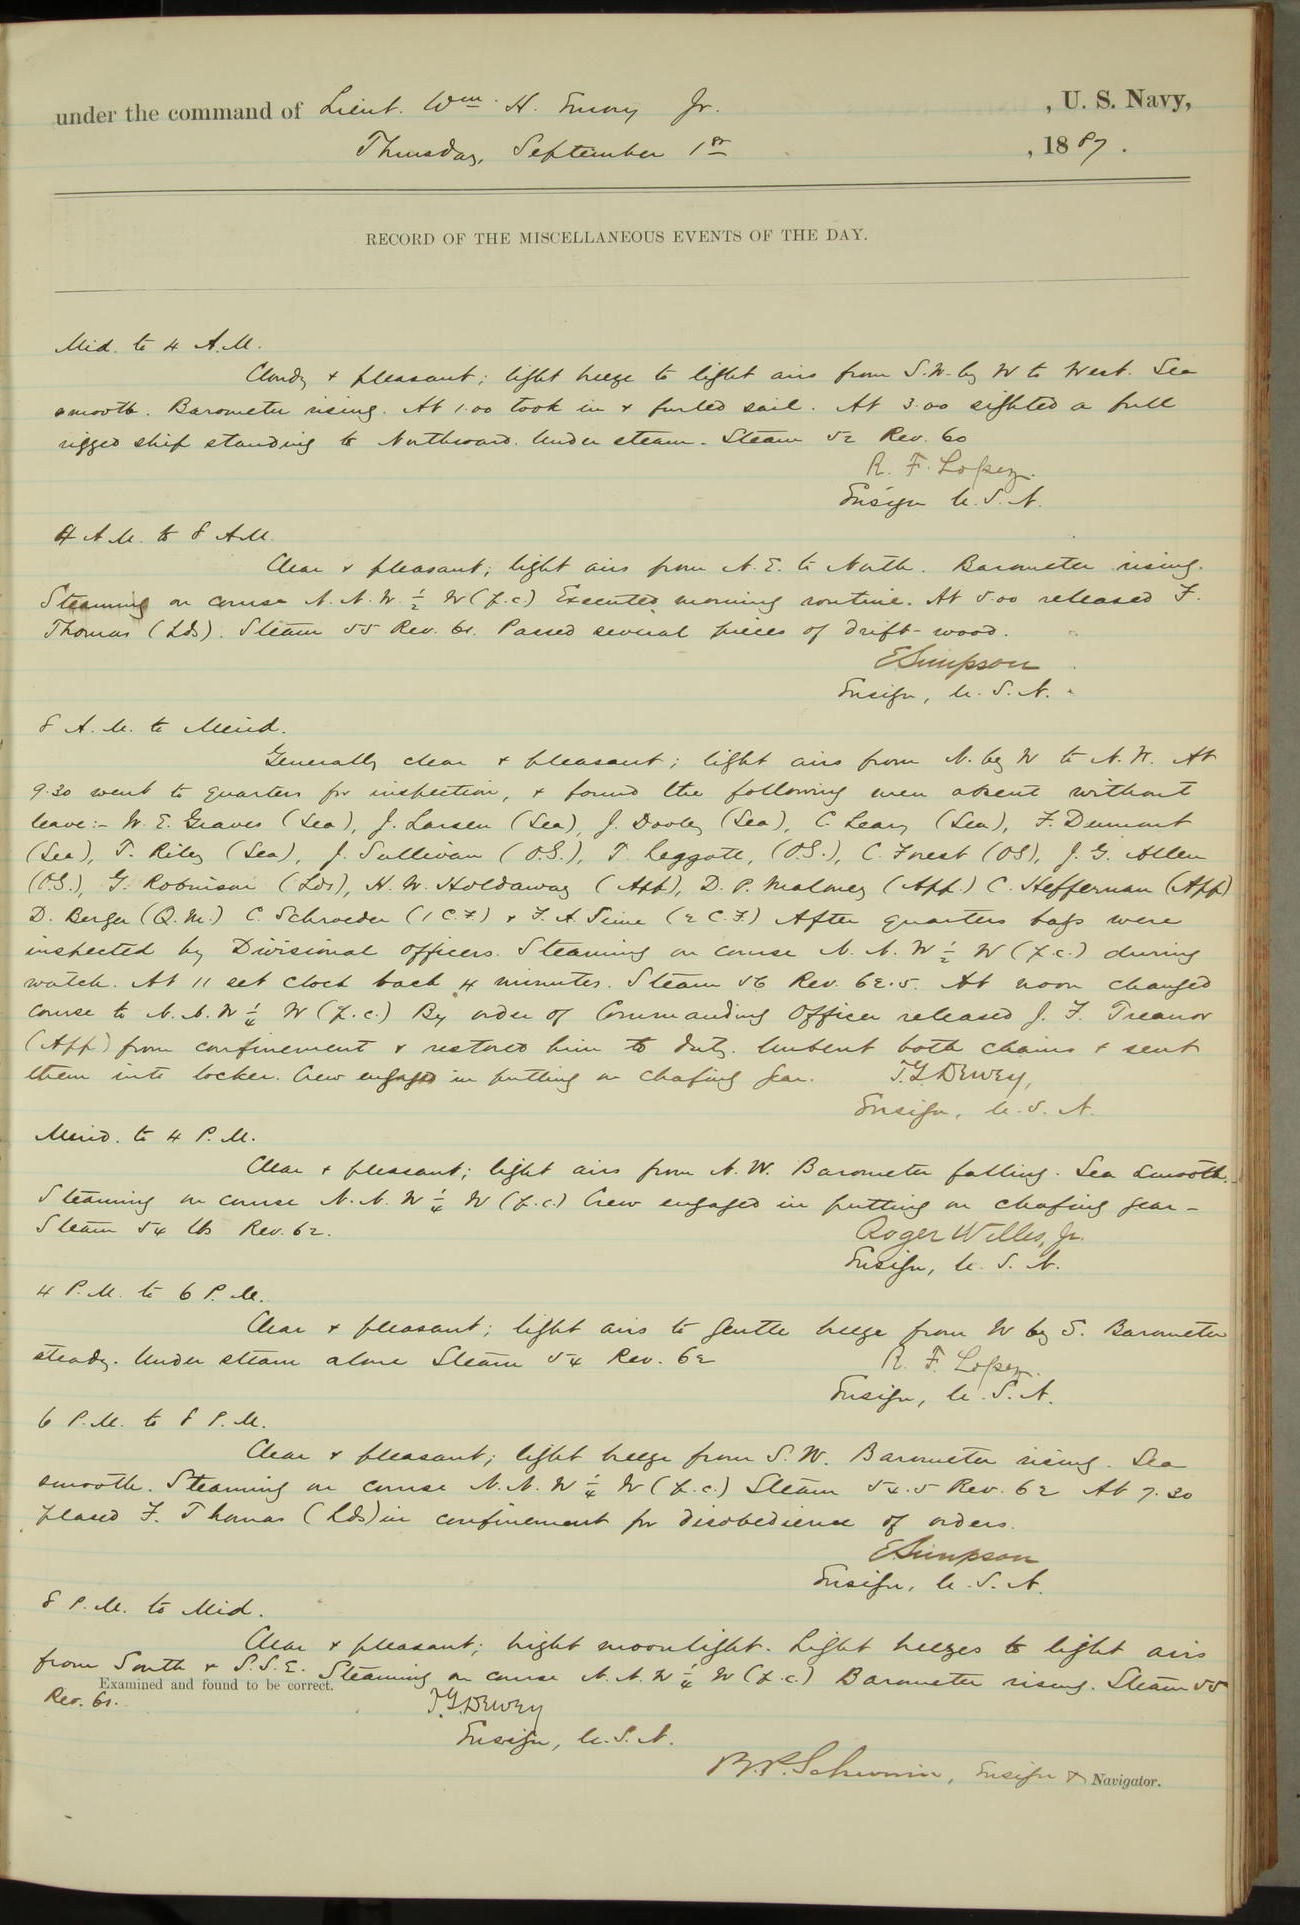 under the command of Lieut. Wm. H. Emory Jr. , U. S. Navy,
Thursday, September 1st , 1887.
RECORD OF THE MISCELLANEOUS EVENTS OF THE DAY.
Mid. to 4 A.M.
Cloudy & pleasant; light breeze to light airs from S.W. by W to West. Sea
smooth. Barometer rising. At 1.00 took in & furled sail. At 3.00 sighted a full
rigged ship standing to Northward. Under steam. Steam 52 Rev. 60
R. F. Lopez.
Ensign U.S.N.
4 A.M. to 8 A.M.
Clear & pleasant; light airs from N.E. to North. Barometer rising.
Steaming on course N.N.W. ½ W (p.c.) Executed morning routine. At 5.00 released F.
Thomas (Lds). Steam 55 Rev. 61. Passed several pieces of drift-wood.
E Simpson
Ensign, U.S.N.
8 A.M. to Merid.
Generally clear & pleasant; light airs from N. by W to N.W. At
9.30 went to quarters for inspection, & found the following men absent without
leave:- W. E. Graves (Sea), J. Larsen (Sea), J. Dooley (Sea), C. Leary (Sea), F. Dumont
(Sea), T. Riley (Sea), J. Sullivan (O.S.), T. Leggatt, (O.S.), C. Forest (OS), J. G. Allen
(O.S.), G. Robinson (Lds), H. W. Holdaway (App), D. P. Maloney (App.) C. Heffernan (App)
D. Berger (Q.M.) C. Schroeder (1 C.F.) & F. A. Sime (2 C.F.) After quarters bags were
inspected by Divisional officers. Steaming on course N.N.W ½ W (p.c.) during
watch. At 11 set clock back 4 minutes. Steam 56 Rev. 62.5. At noon changed
course to N.N.W ¼ W (p.c.) By order of Commanding Officer released J. F. Treanor
(App) from confinement & restored him to duty. Unbent both chains & sent
them into locker. Crew engaged in putting on chafing gear. T.G. Dewey,
Ensign, U.S.N.
Merid. to 4 P.M.
Clear & pleasant; light airs from N.W. Barometer falling. Sea smooth.
Steaming on course N.N.W ¼ W (p.c.) Crew engaged in putting on chafing gear -
Steam 54 lbs Rev. 62. Roger Welles, Jr.
Ensign, U.S.N.
4 P.M. to 6 P.M.
Clear & pleasant; light airs to gentle breeze from W by S. Barometer
steady. Under steam alone Steam 54 Rev. 62 R. F. Lopez.
Ensign, U.S.N.
6 P.M. to 8 P.M.
Clear & pleasant; light breeze from S.W. Barometer rising. Sea
smooth. Steaming on course N.N.W ¼ W (p.c.) Steam 54.5 Rev. 62 At 7.30
placed F. Thomas (Lds) in confinement for disobedience of orders.
E Simpson
Ensign, U.S.N.
8 P.M. to Mid.
Clear & pleasant; bright moonlight. Light breezes to light airs
from South & S.S.E. Steaming on course N.N.W ¼ W (p.c.) Barometer rising. Steam 55
Examined and found to be correct.
Rev. 61. T.G. Dewey
Ensign, U.S.N.
R.P. Schwerin, Ensign & Navigator.